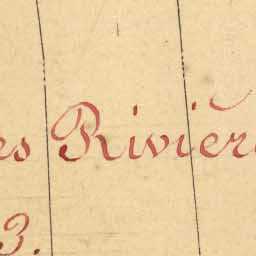 es Rivière
3.